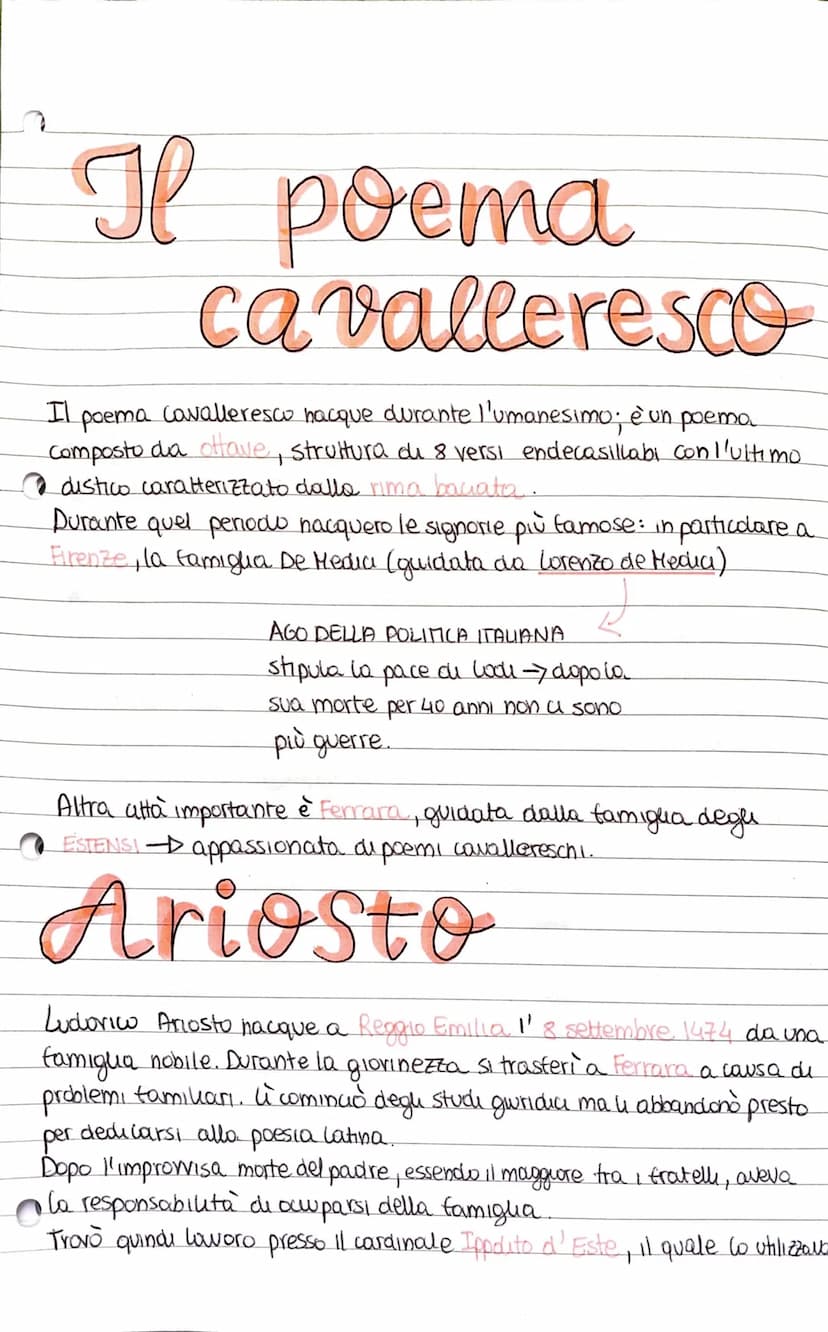 Il poema
cavalleresco
Il poema cavalleresco nacque durante l'umanesimo; è un poema
composto da ottave, struttura di 8 versi endecasillabi con l'ultimo
distico caratterizzato dalla rima baciata.
Durante quel periodo nacquero le signorie più famose: in particolare a
Firenze, la famiglia De Medici (guidata da Lorenzo de Medici)
AGO DELLA POLITICA ITALIANA
stipula la pace di Lodi → dopo la
sua morte per 40 anni non ci sono
più guerre.
Altra città importante è Ferrara, guidata dalla famiglia degli
ESTENSI → appassionata di poemi cavallereschi.
Ariosto
Ludovico Ariosto nacque a Reggio Emilia l' 8 settembre 1474 da una
famiglia nobile. Durante la giovinezza si trasferì a Ferrara a causa di
problemi familiari. Lì cominciò degli studi giuridici ma li abbandonò presto
per dedicarsi alla poesia latina.
Dopo l'improvvisa morte del padre, essendo il maggiore tra i fratelli, aveva
la responsabilità di occuparsi della famiglia.
Trovò quindi lavoro presso il cardinale Ippolito d'Este, il quale lo utilizzava